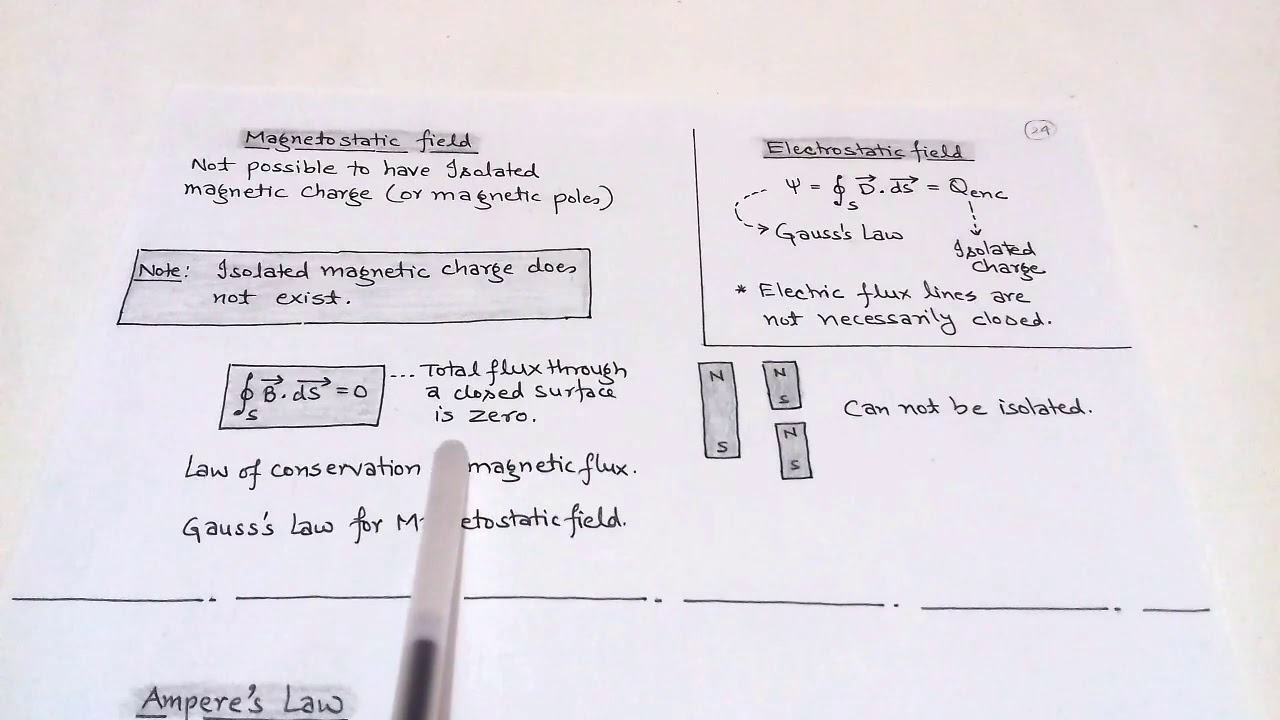 Magnetostatic field
Not possible to have Isolated
magnetic charge (or magnetic poles)
Note: Isolated magnetic charge does
not exist.
∮S B⃗. ds⃗ = 0
... Total flux through
a closed surface
is zero.
Law of conservation magnetic flux.
Gauss's Law for M etostatic field.
24
Electrostatic field
Ψ = ∮S D⃗. ds⃗ = Qenc
Gauss's Law
Isolated
charge
* Electric flux lines are
not necessarily closed.
N
S
N
S
N
S
Can not be isolated.
Ampere's Law